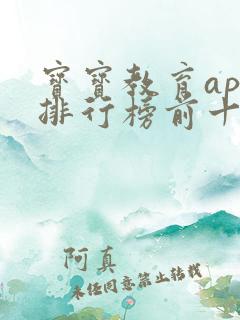 宝宝教育ap
排行榜前十
阿真
未经同意禁止转载